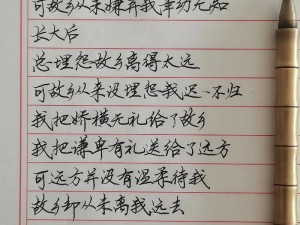 可故乡从未嫌弃我年幼无知
长大后
总埋怨故乡离得太远
可故乡从来没埋怨我迟迟不归
我把娇横无礼给了故乡
我把谦卑有礼送给了远方
可远方并没有温柔待我
故乡却从未离我远去